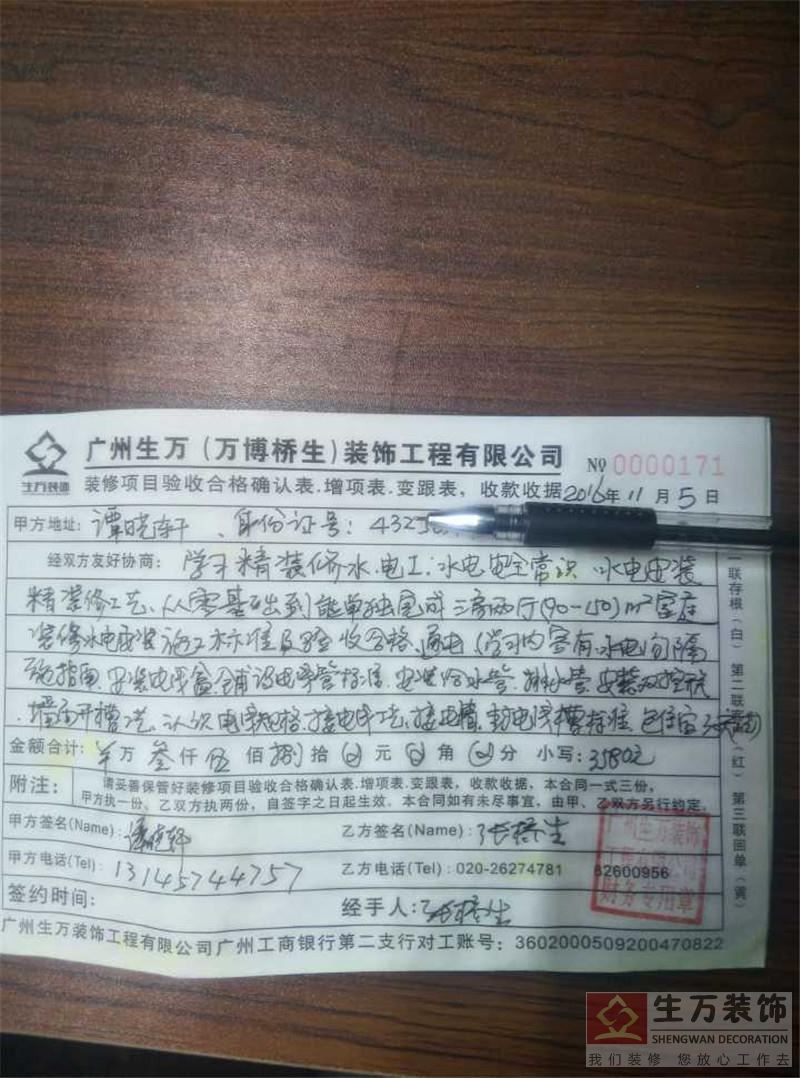 广州生万（万博桥生）装饰工程有限公司 № 0000171
生万装饰 装修项目验收合格确认表.增项表.变跟表，收款收据 2016年11月5日
甲方地址：谭晓轩、身份证号：4325
经双方友好协商：学习精装修水.电工.水电安全常识 水电安装
精装修工艺、从零基础到能单独完成三房两厅(90-150)m²家庭
装修水电安装施工标准及验收合格、通电(学习内容有水电间隔
施指南、安装电线盒铺设电线管标准、安装给水管.排水管.安装双控
墙面开槽工艺、认识电线规格、接电线工艺、接电槽、封电线槽标准、包住宿
金额合计：万 叁仟 伍佰 捌拾 元 角 分 小写：3580元
附注：请妥善保管好装修项目验收合格确认表.增项表.变跟表，收款收据，本合同一式三份，
甲方执一份、乙双方执两份，自签字之日起生效。本合同如有未尽事宜，由甲、乙双方另行约定。
甲方签名(Name)：谭晓轩 乙方签名(Name)：张桥生
甲方电话(Tel)：13145744757 乙方电话(Tel)：020-26274781 82600956
签约时间： 经手人：张桥生
广州生万装饰工程有限公司广州工商银行第二支行对工账号：3602000509200470822
一联存根(白) 第二联(红) 第三联回单(黄)
广州生万装饰
工程有限公司
财务专用章
生万装饰
SHENGWAN DECORATION
我们装修 您放心工作去